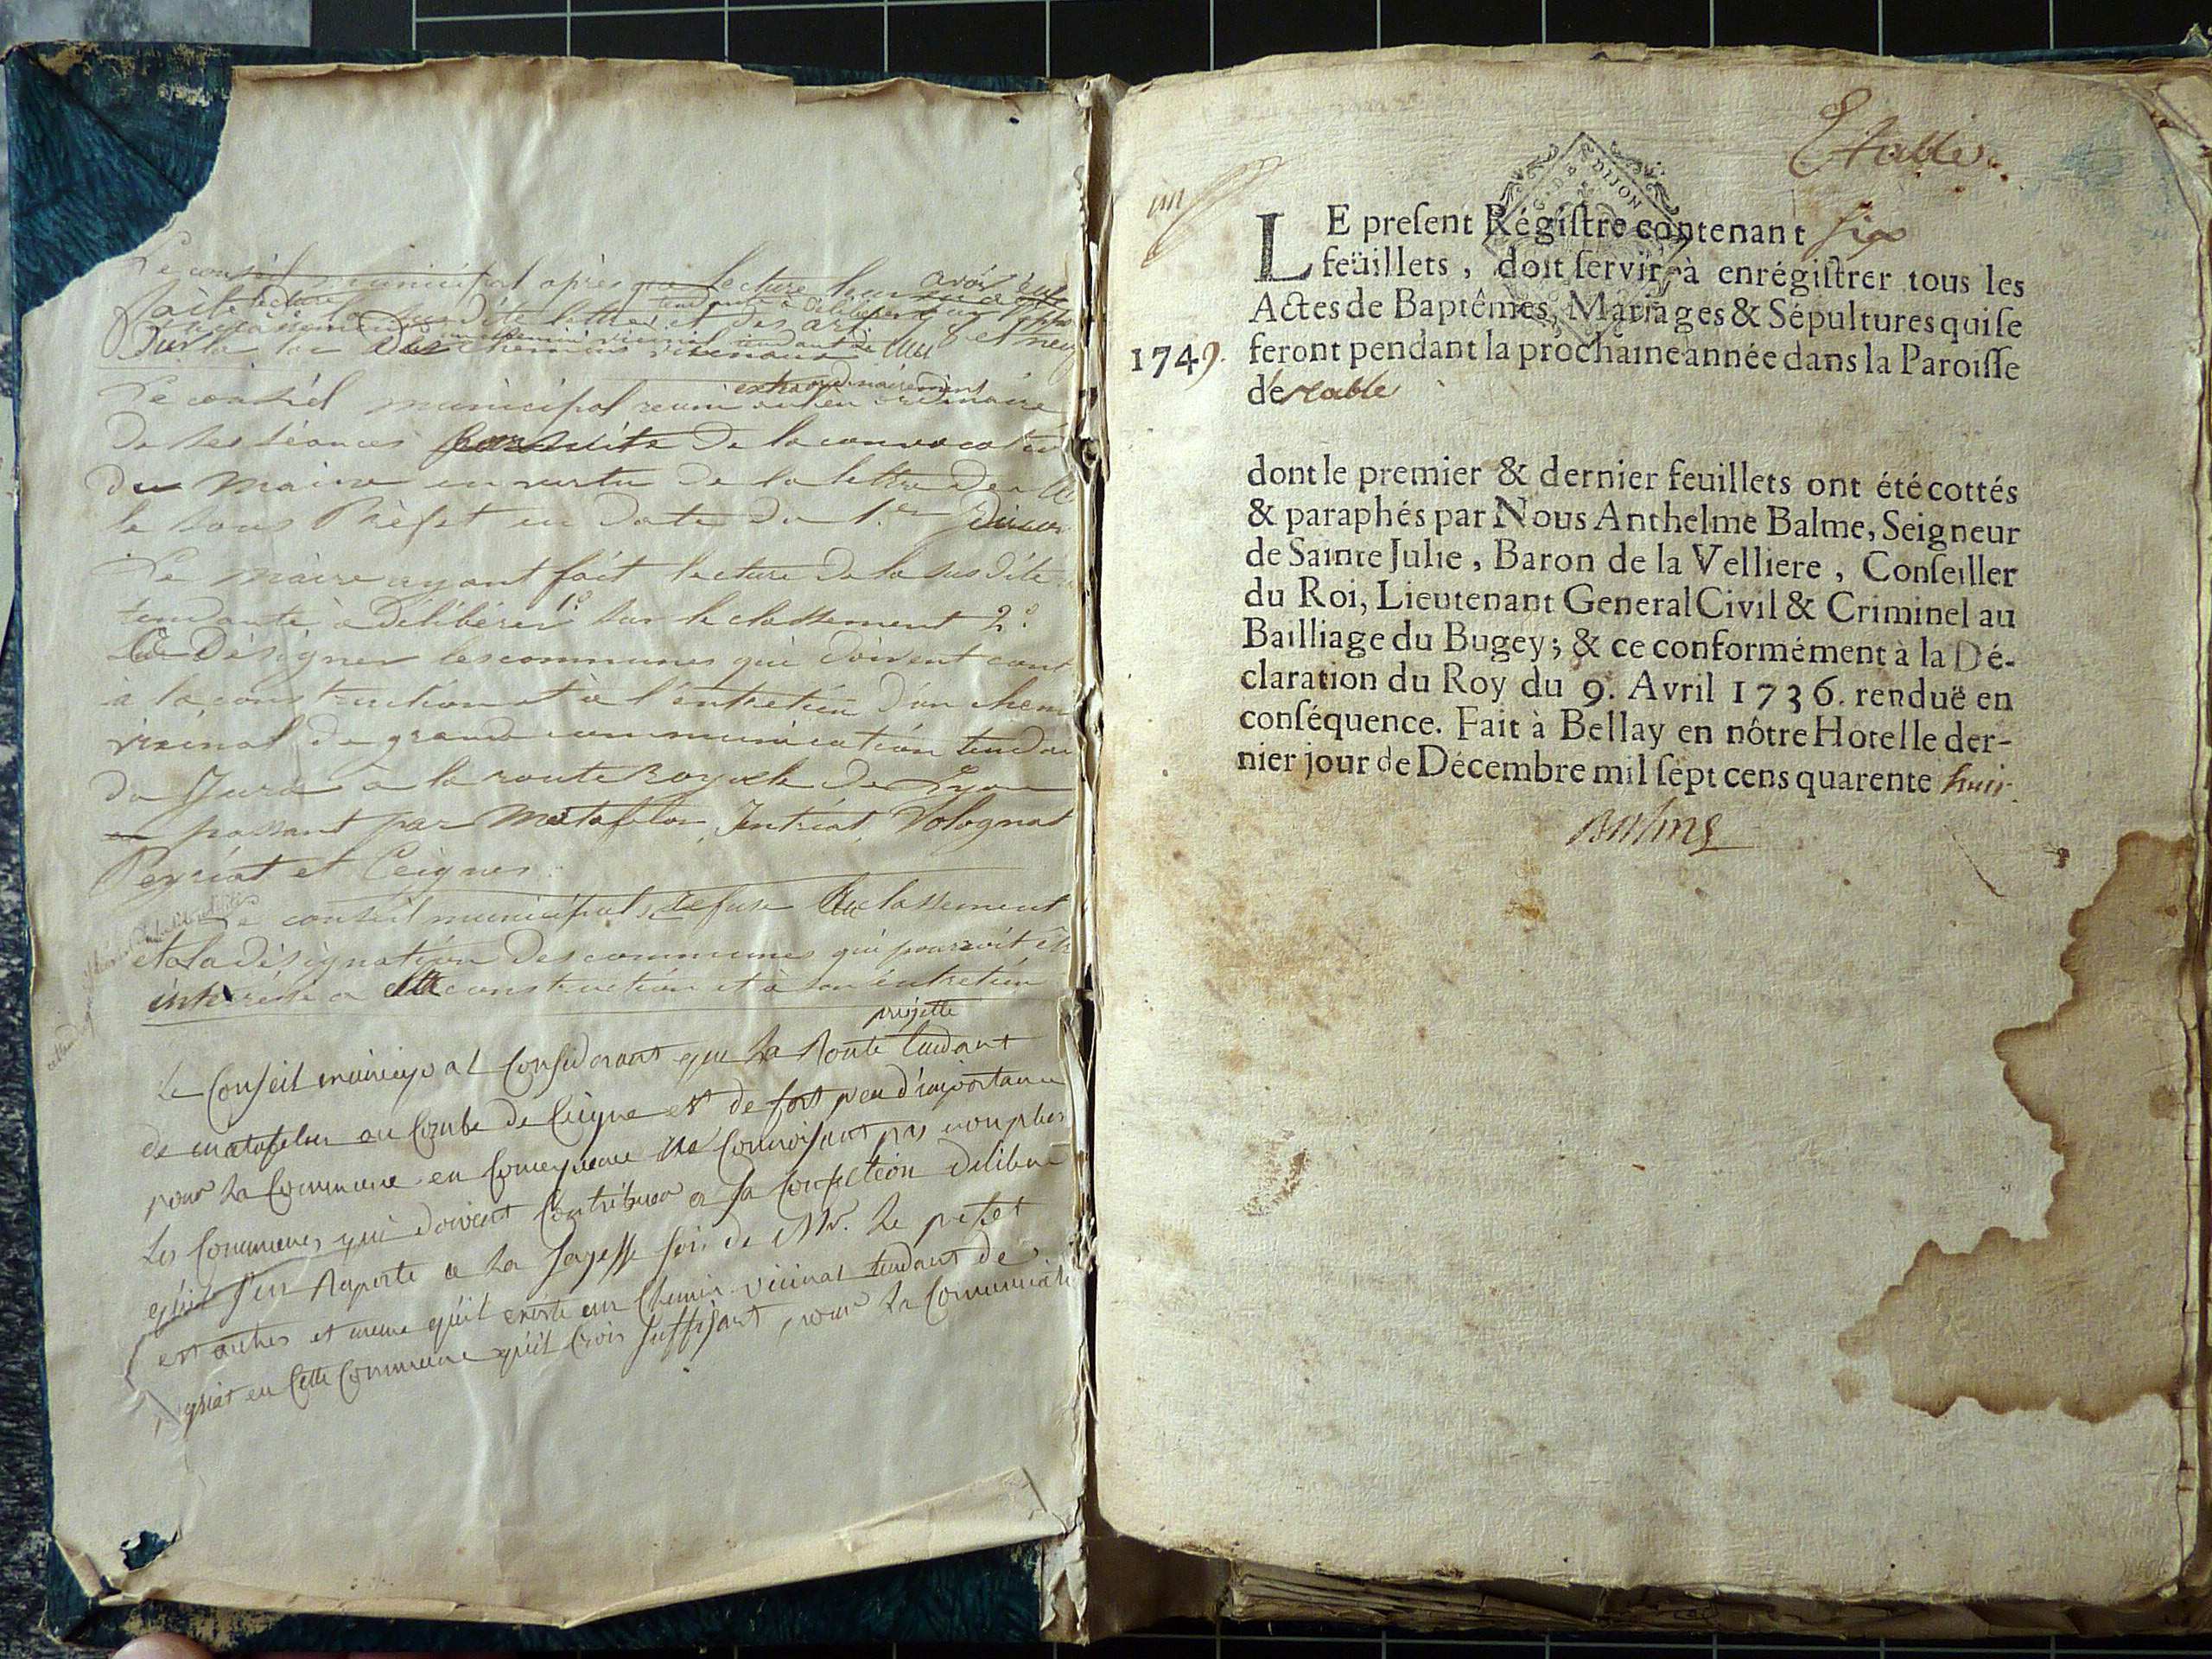 Le conseil municipal après lecture
avoir
faite lecture la susdite lettre et des art. 7 8 et neuf
tendante à Délibérer
Sur la loi Des chemins vicinaux
extraordinairement
Le conseil municipal reuni au lieu ordinaire
De ses séances par suite De la convocation
Du Maire en vertu De la lettre De M
le sous Préfet en Date Du 1.er
Le Maire ayant fait lecture De la susdite
tendante à Délibérer 1.o sur le classement 2.o
De Désigner les communes qui Doivent cont
à la construction et à l'entretien D'un chem
vicinal De grande communication tendan
Du Jura à la route Royale De Lyon
en passant par Matafelon, Intriat, Volognat
Peyriat et Ceignes
Le conseil municipal refuse le classement
et la désignation Des communes qui pourroit êt
intéressé a construction et à son entretien
projetté
Le Conseil municipal Considerant que La Route tendant
de matafelon au Combe de Ceigne est de fort peu d'importance
pour La Commune en Consequence ne Connoissant pas non plus
Les Communes qui doivent Contribuer a sa Confection delibere
qu'il s'en Raporte a La Sagesse de Mr. Le prefet
et autres et meme qu'il existe un Chemin vicinal tendant de
en Cette Commune qu'il Crois suffisant, pour La Communicati
Etable.
G. D. DIJON
LE preſent Régiſtre contenant six
feüillets, doit ſervir à enrégiſtrer tous les
Actes de Baptêmes, Mariages & Sépultures qui ſe
1749. feront pendant la prochaine année dans la Paroiſſe
d'estable
dont le premier & dernier feuillets ont été cottés
& paraphés par Nous Anthelme Balme, Seigneur
de Sainte Julie, Baron de la Velliere, Conſeiller
du Roi, Lieutenant General Civil & Criminel au
Bailliage du Bugey; & ce conformément à la Dé-
claration du Roy du 9. Avril 1736. renduë en
conſéquence. Fait à Bellay en nôtre Hotel le der-
nier jour de Décembre mil ſept cens quarente huit.
Balme